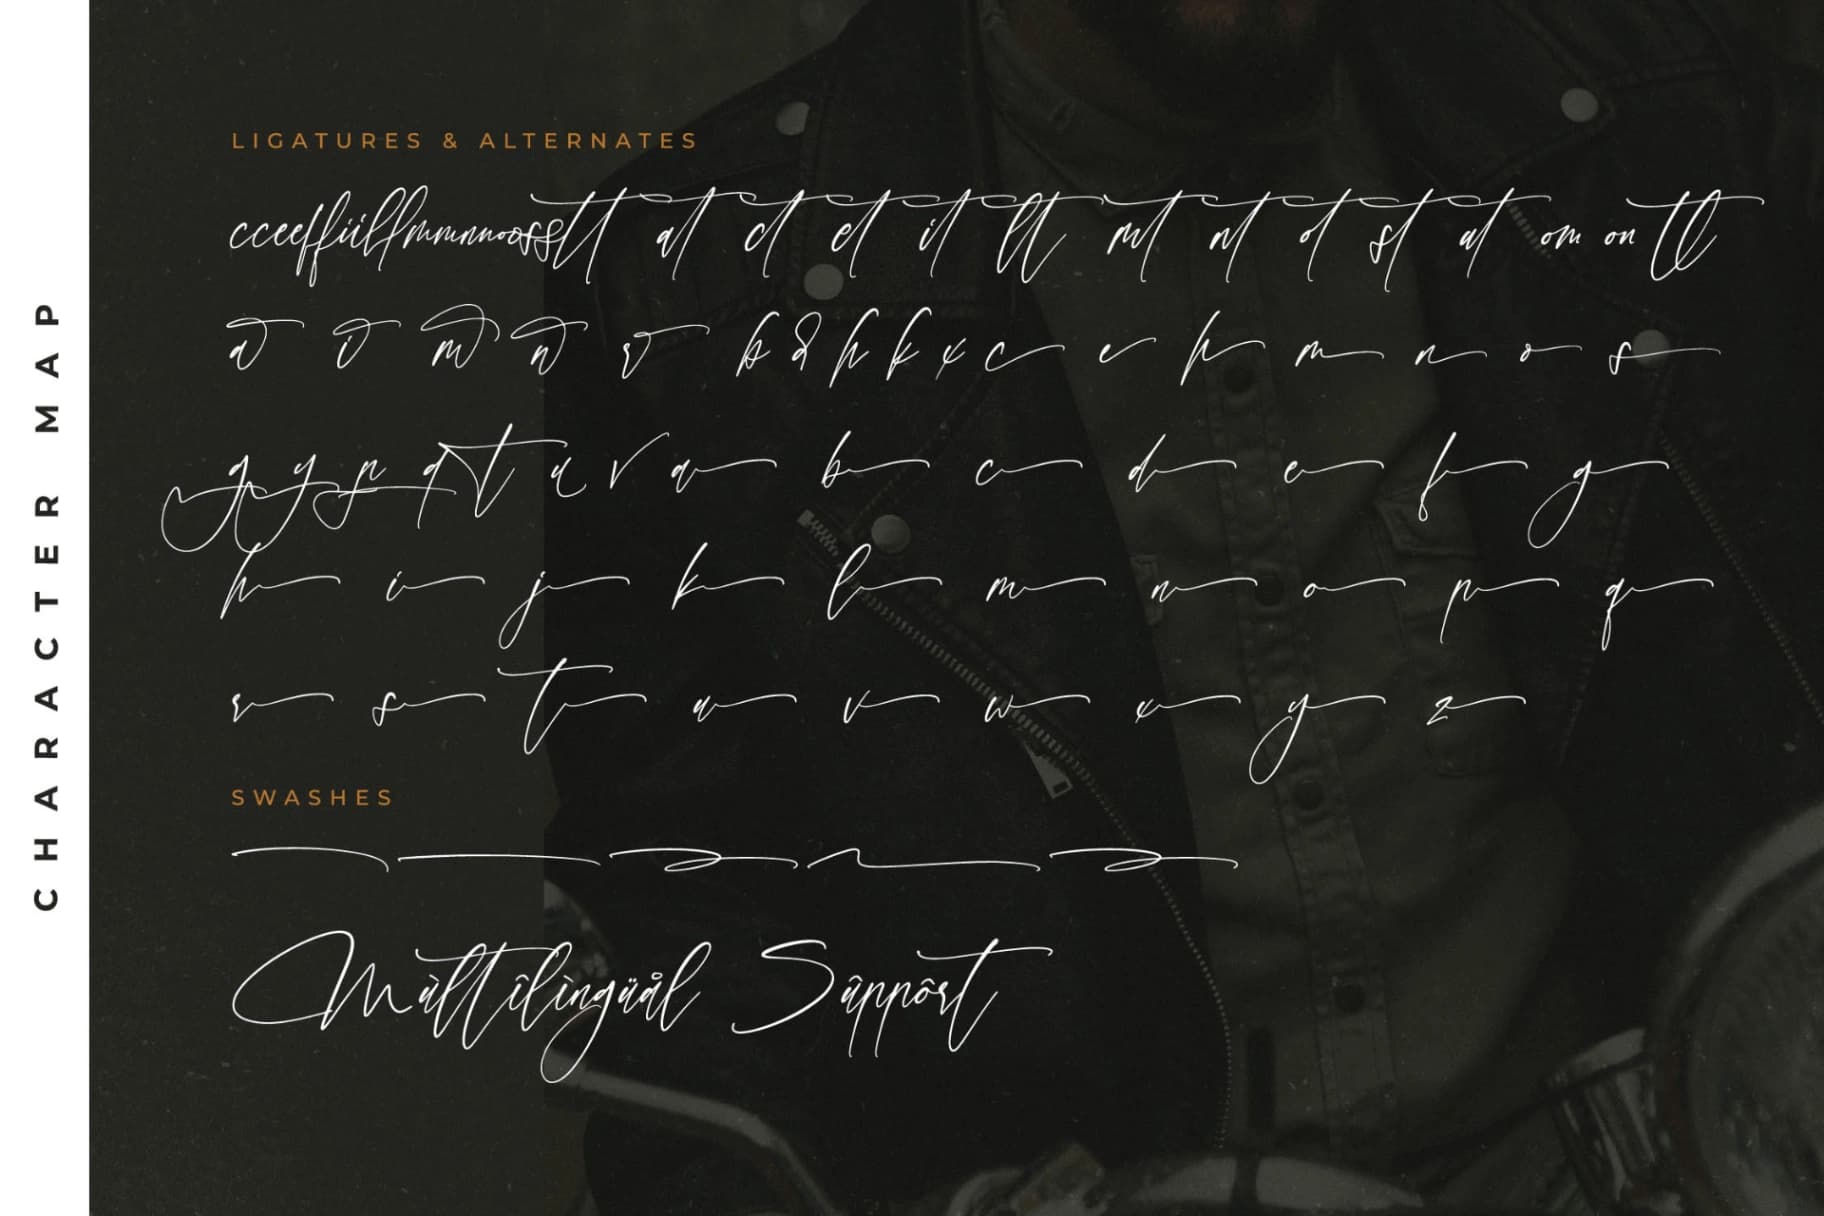 CHARACTER MAP
LIGATURES & ALTERNATES
cc ee ff ii ll ff mm nn oo ss tt at ct et it lt mt nt ot st ut om on tl
a o m n r b d h k x c e h m n o s
g y p q t u v a b c d e f g
h i j k l m n o p q
r s t u v w x y z
SWASHES
Mùltîlìngüål Sūppôrt